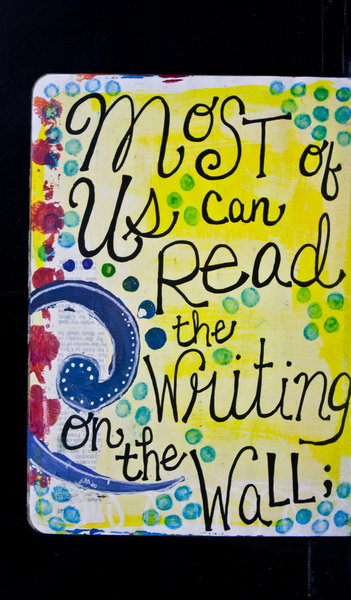 MOST of
Us can
Read
the
Writing
on the
WALL;